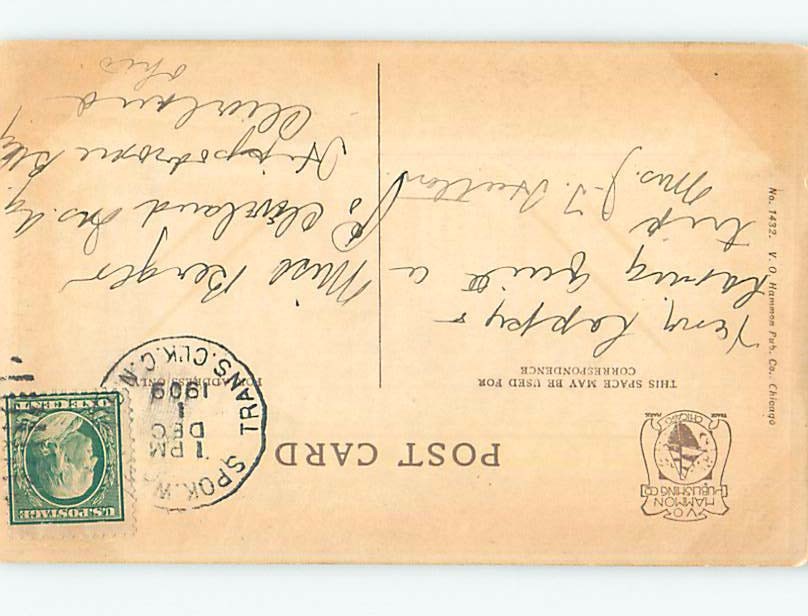 V.O.
HAMMON
PUBLISHING CO.
CHICAGO
TRADE MARK
POST CARD
U.S. POSTAGE
ONE CENT
TRANS. CLK. C.N.
SPOK. W.
1 PM
DEC
1
1909
THIS SPACE MAY BE USED FOR
CORRESPONDENCE
FOR ADDRESS ONLY
Very happy &
having quite a
trip
Mrs. J.T.
Miss Berger
Cleveland Ins. Ag.
Hippodrome Bldg
Cleveland
Ohio
No. 1432. V. O. Hammon Pub. Co., Chicago